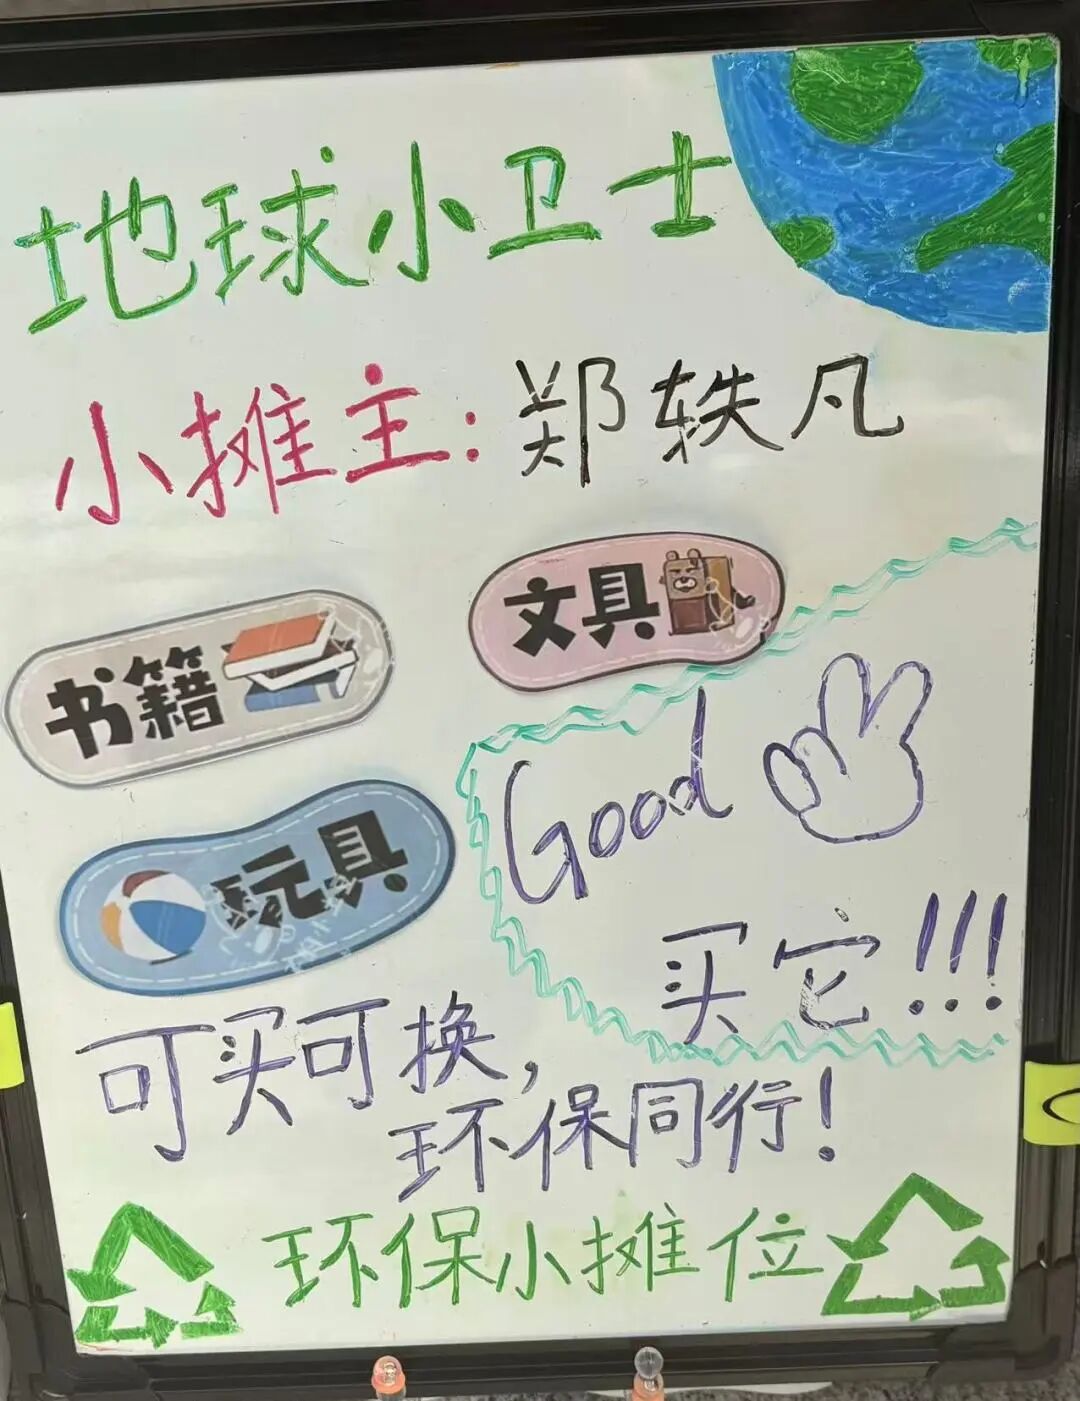 地球小卫士
小摊主：郑轶凡
文具
书籍
Good
玩具
买它!!!
可买可换，
环保同行！
环保小摊位